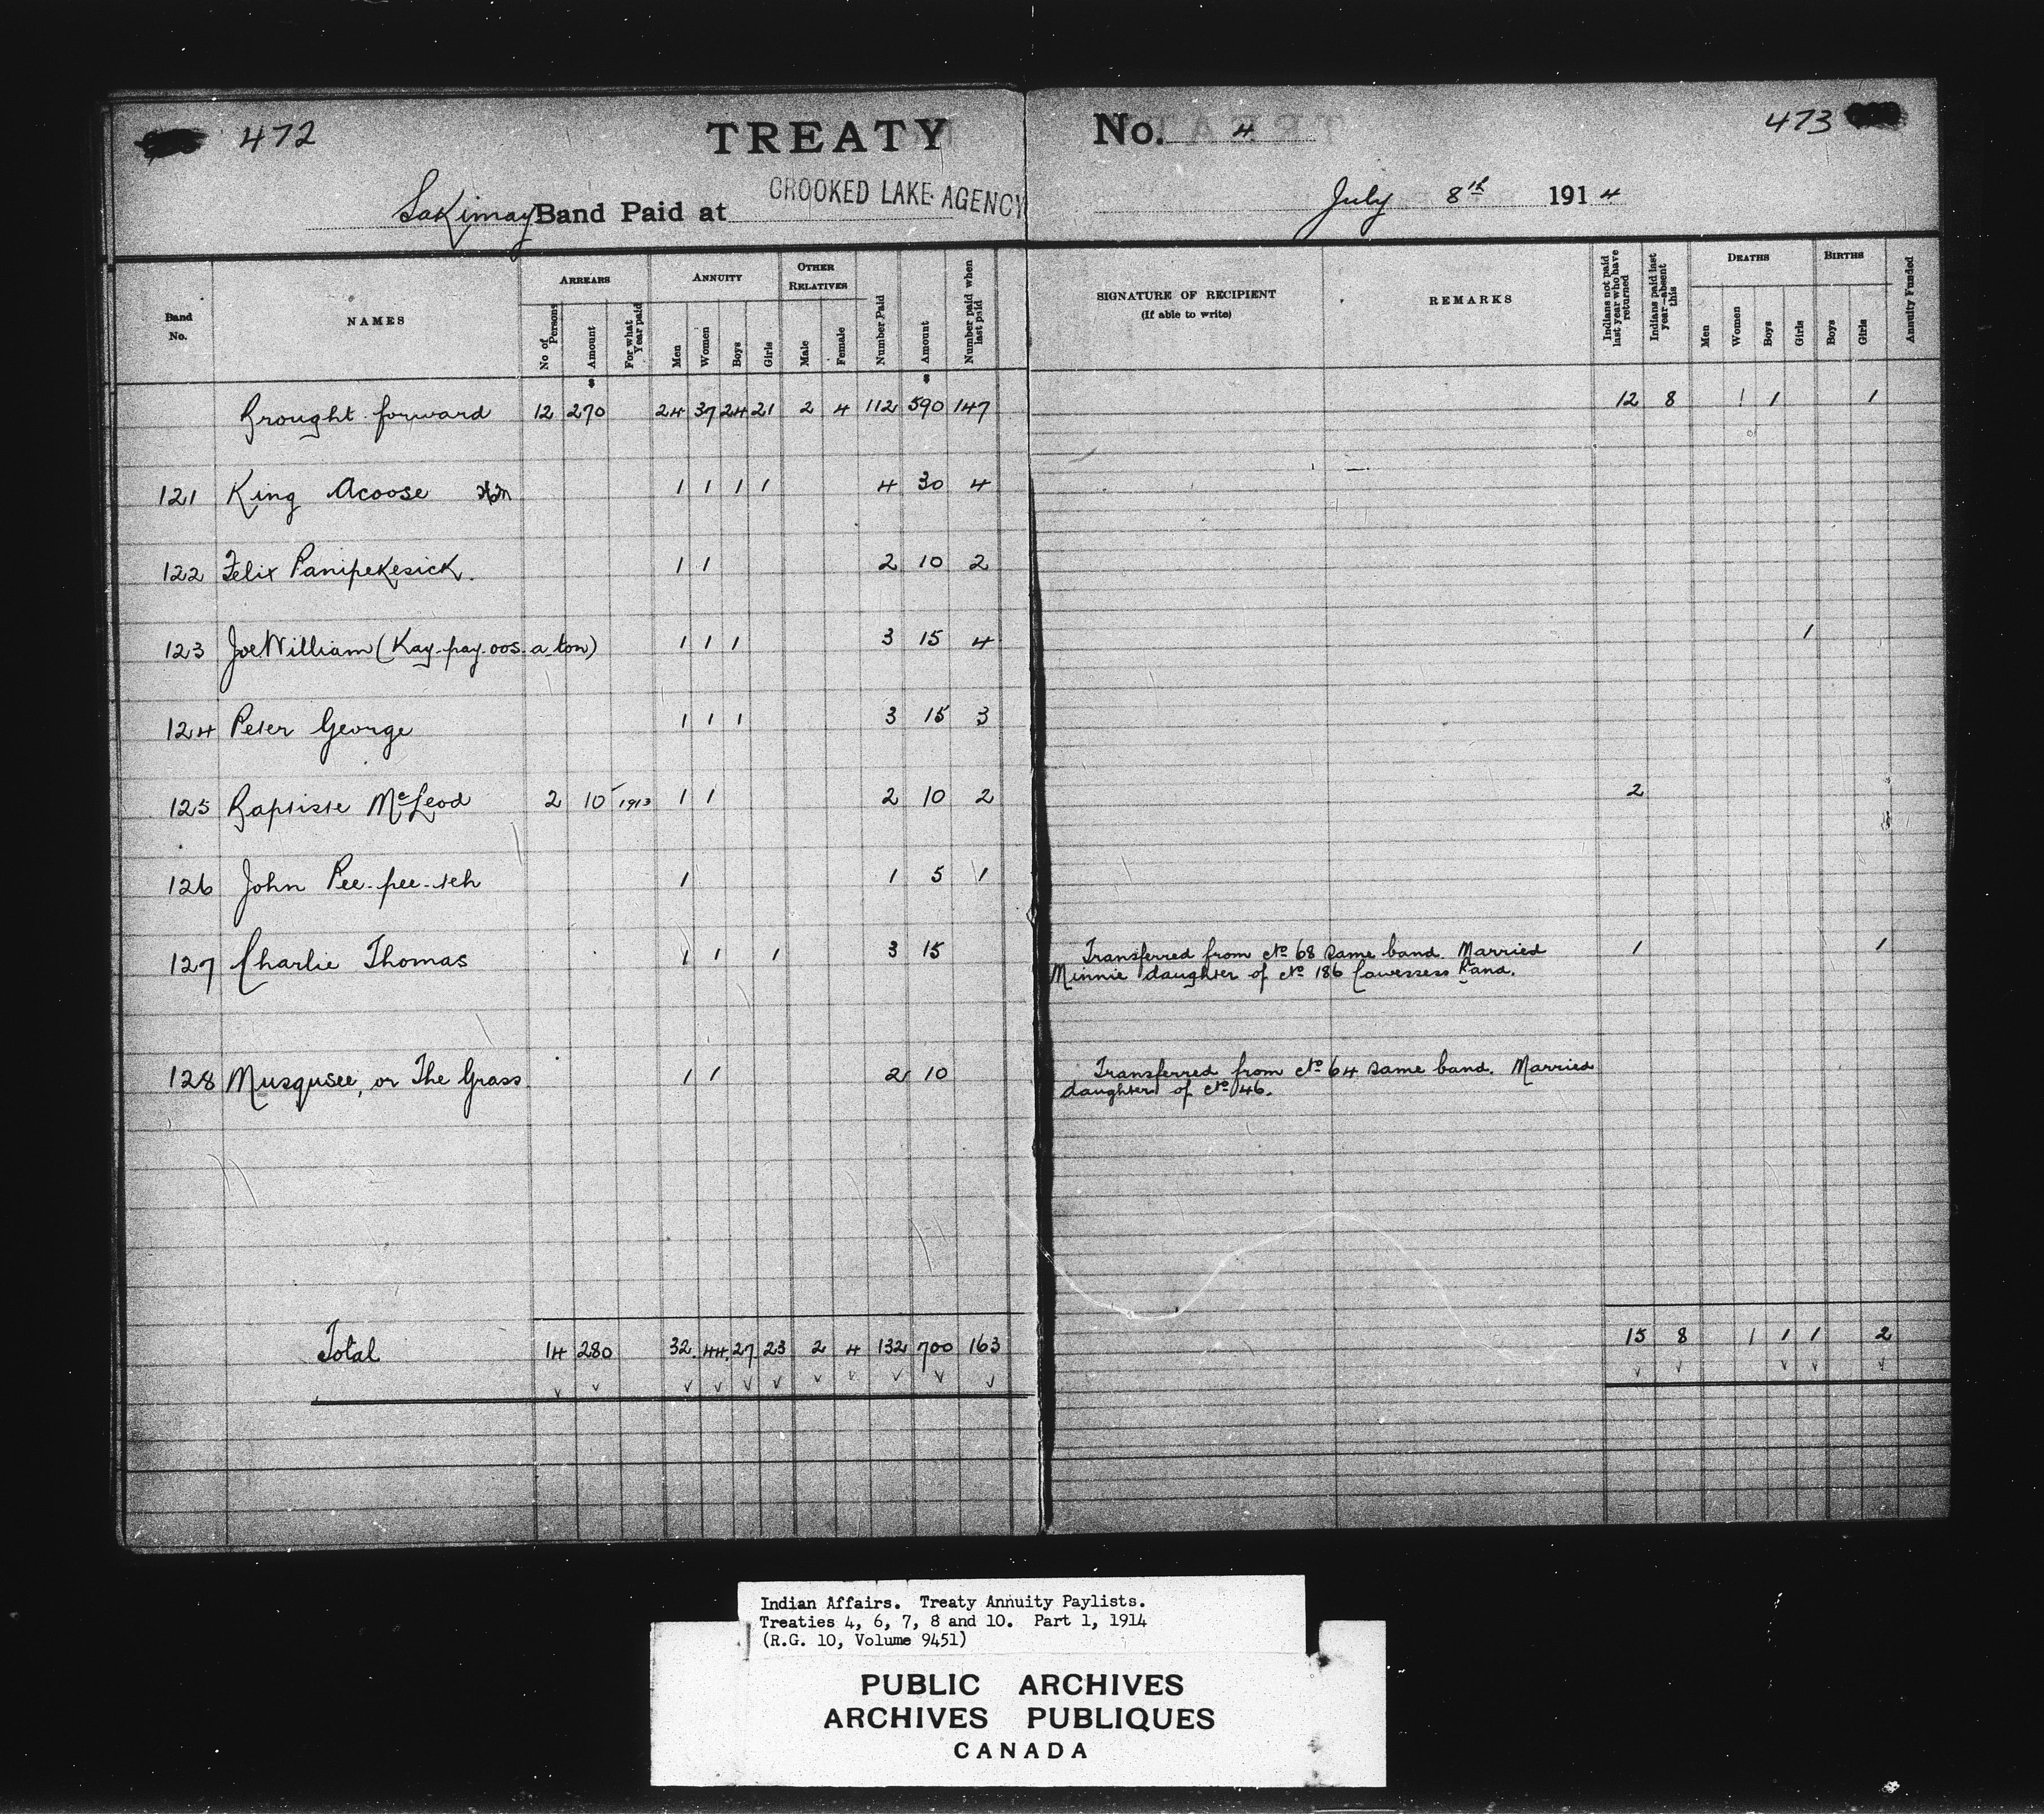 472
TREATY No. 4
473
Sakimay Band Paid at CROOKED LAKE AGENCY July 8th 1914
Band No.
NAMES
ARREARS
No of Persons
Amount
For what Year paid
ANNUITY
Men
Women
Boys
Girls
OTHER RELATIVES
Male
Female
Number Paid
Amount
Number paid when last paid
SIGNATURE OF RECIPIENT
(If able to write)
REMARKS
Indians not paid last year who have returned
Indians paid last year—absent this
DEATHS
Men
Women
Boys
Girls
BIRTHS
Boys
Girls
Annuity Funded
$ $
Brought forward 12 270 24 37 24 21 2 4 112 590 147 12 8 1 1 1
121 King Acoose 1 1 1 1 4 30 4
122 Felix Panipekesick. 1 1 2 10 2
123 Joe William (Kay-pay-oos-a-ton) 1 1 1 3 15 4 1
124 Peter George 1 1 1 3 15 3
125 Baptiste McLeod 2 10 1913 1 1 2 10 2 2
126 John Pee-pee-teh 1 1 5 1
127 Charlie Thomas 1 1 1 3 15 Transferred from No 68 same band. Married 1 1
Minnie daughter of No 186 Cowessess Band.
128 Musqusee, or The Grass 1 1 2 10 Transferred from No 64 same band. Married
daughter of No 46.
Total 14 280 32 44 27 23 2 4 132 700 163 15 8 1 1 1 2
Indian Affairs. Treaty Annuity Paylists.
Treaties 4, 6, 7, 8 and 10. Part 1, 1914
(R.G. 10, Volume 9451)
PUBLIC ARCHIVES
ARCHIVES PUBLIQUES
CANADA